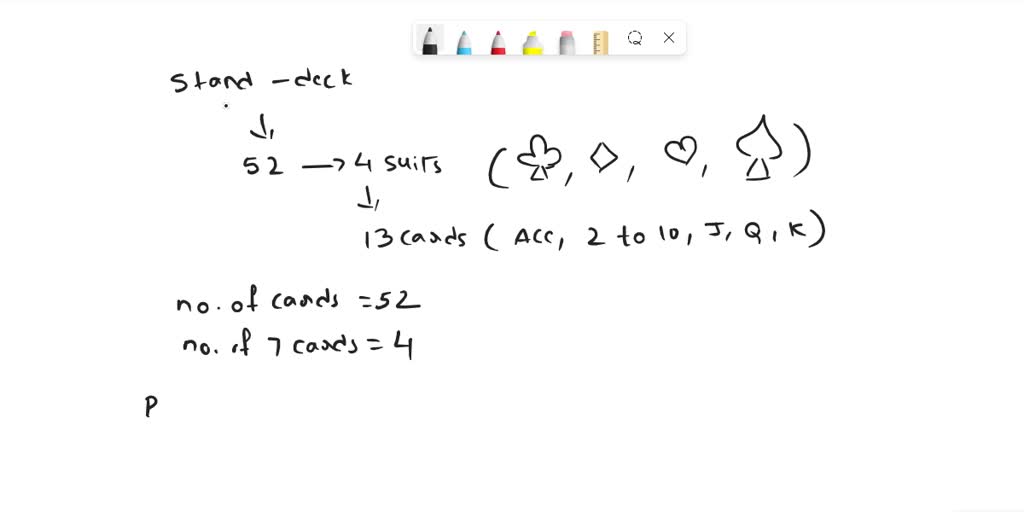 Stand - deck
52 → 4 suits (♧, ◇, ♡, ♤)
13 cards ( Acc, 2 to 10, J, Q, K)
no. of cards = 52
no. of 7 cards = 4
P